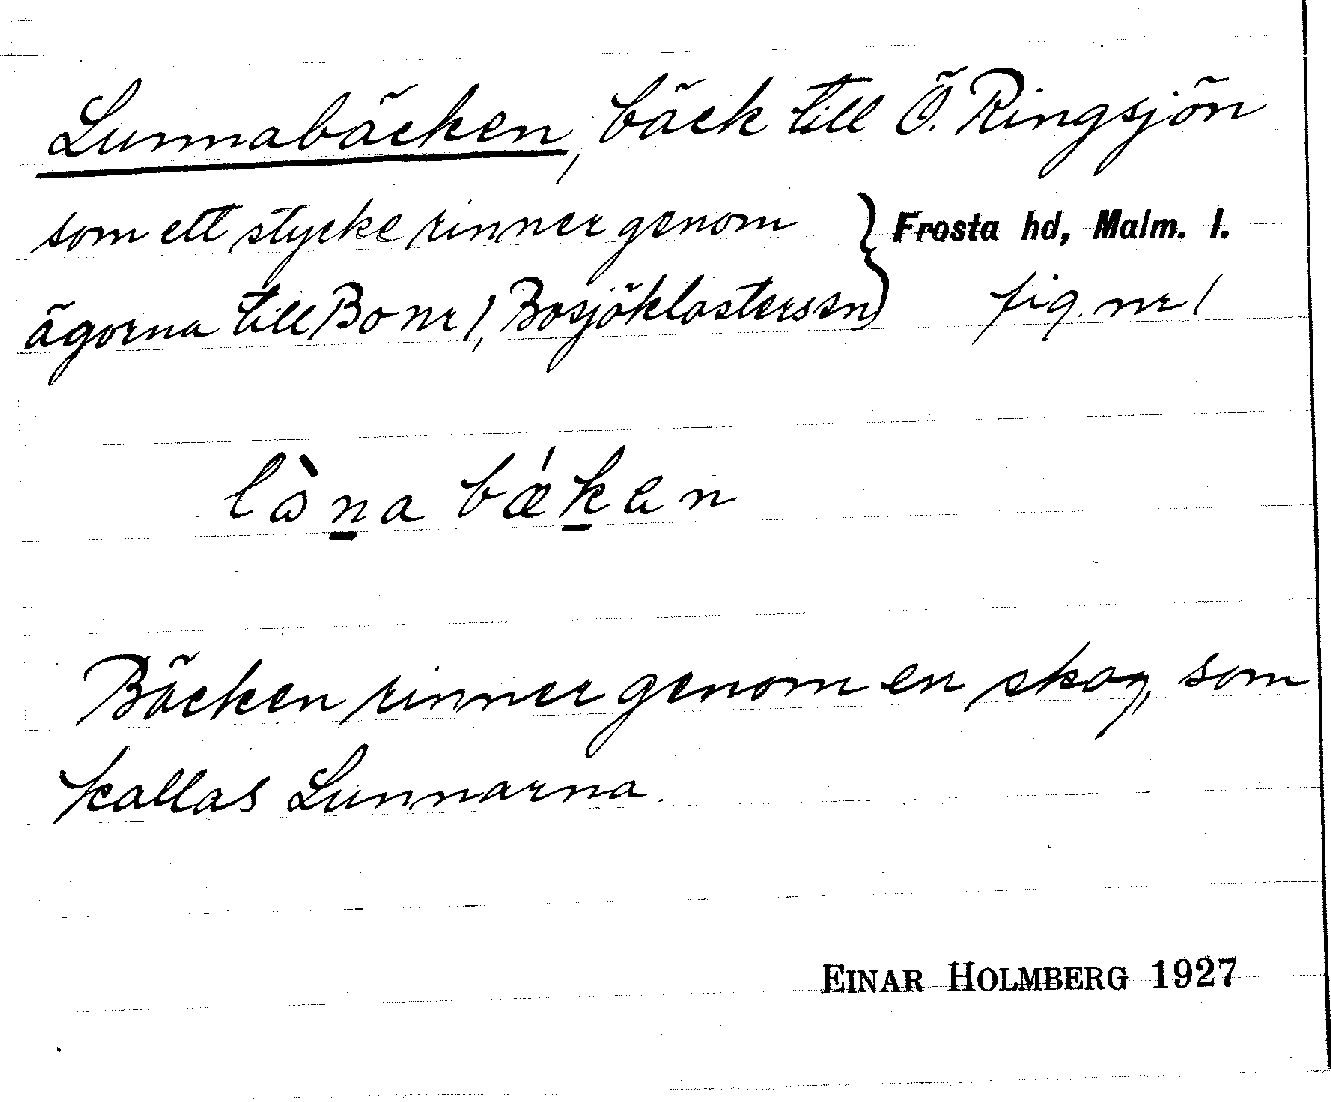 Lunnabäcken, bäck till Ö. Ringsjön
som ett stycke rinner genom } Frosta hd, Malm. l.
ägorna till Bo nr 1, Bosjöklosters sn } fig. nr 1
lòn̲a bǽk̲en
Bäcken rinner genom en skog, som
kallas Lunnarna.
EINAR HOLMBERG 1927